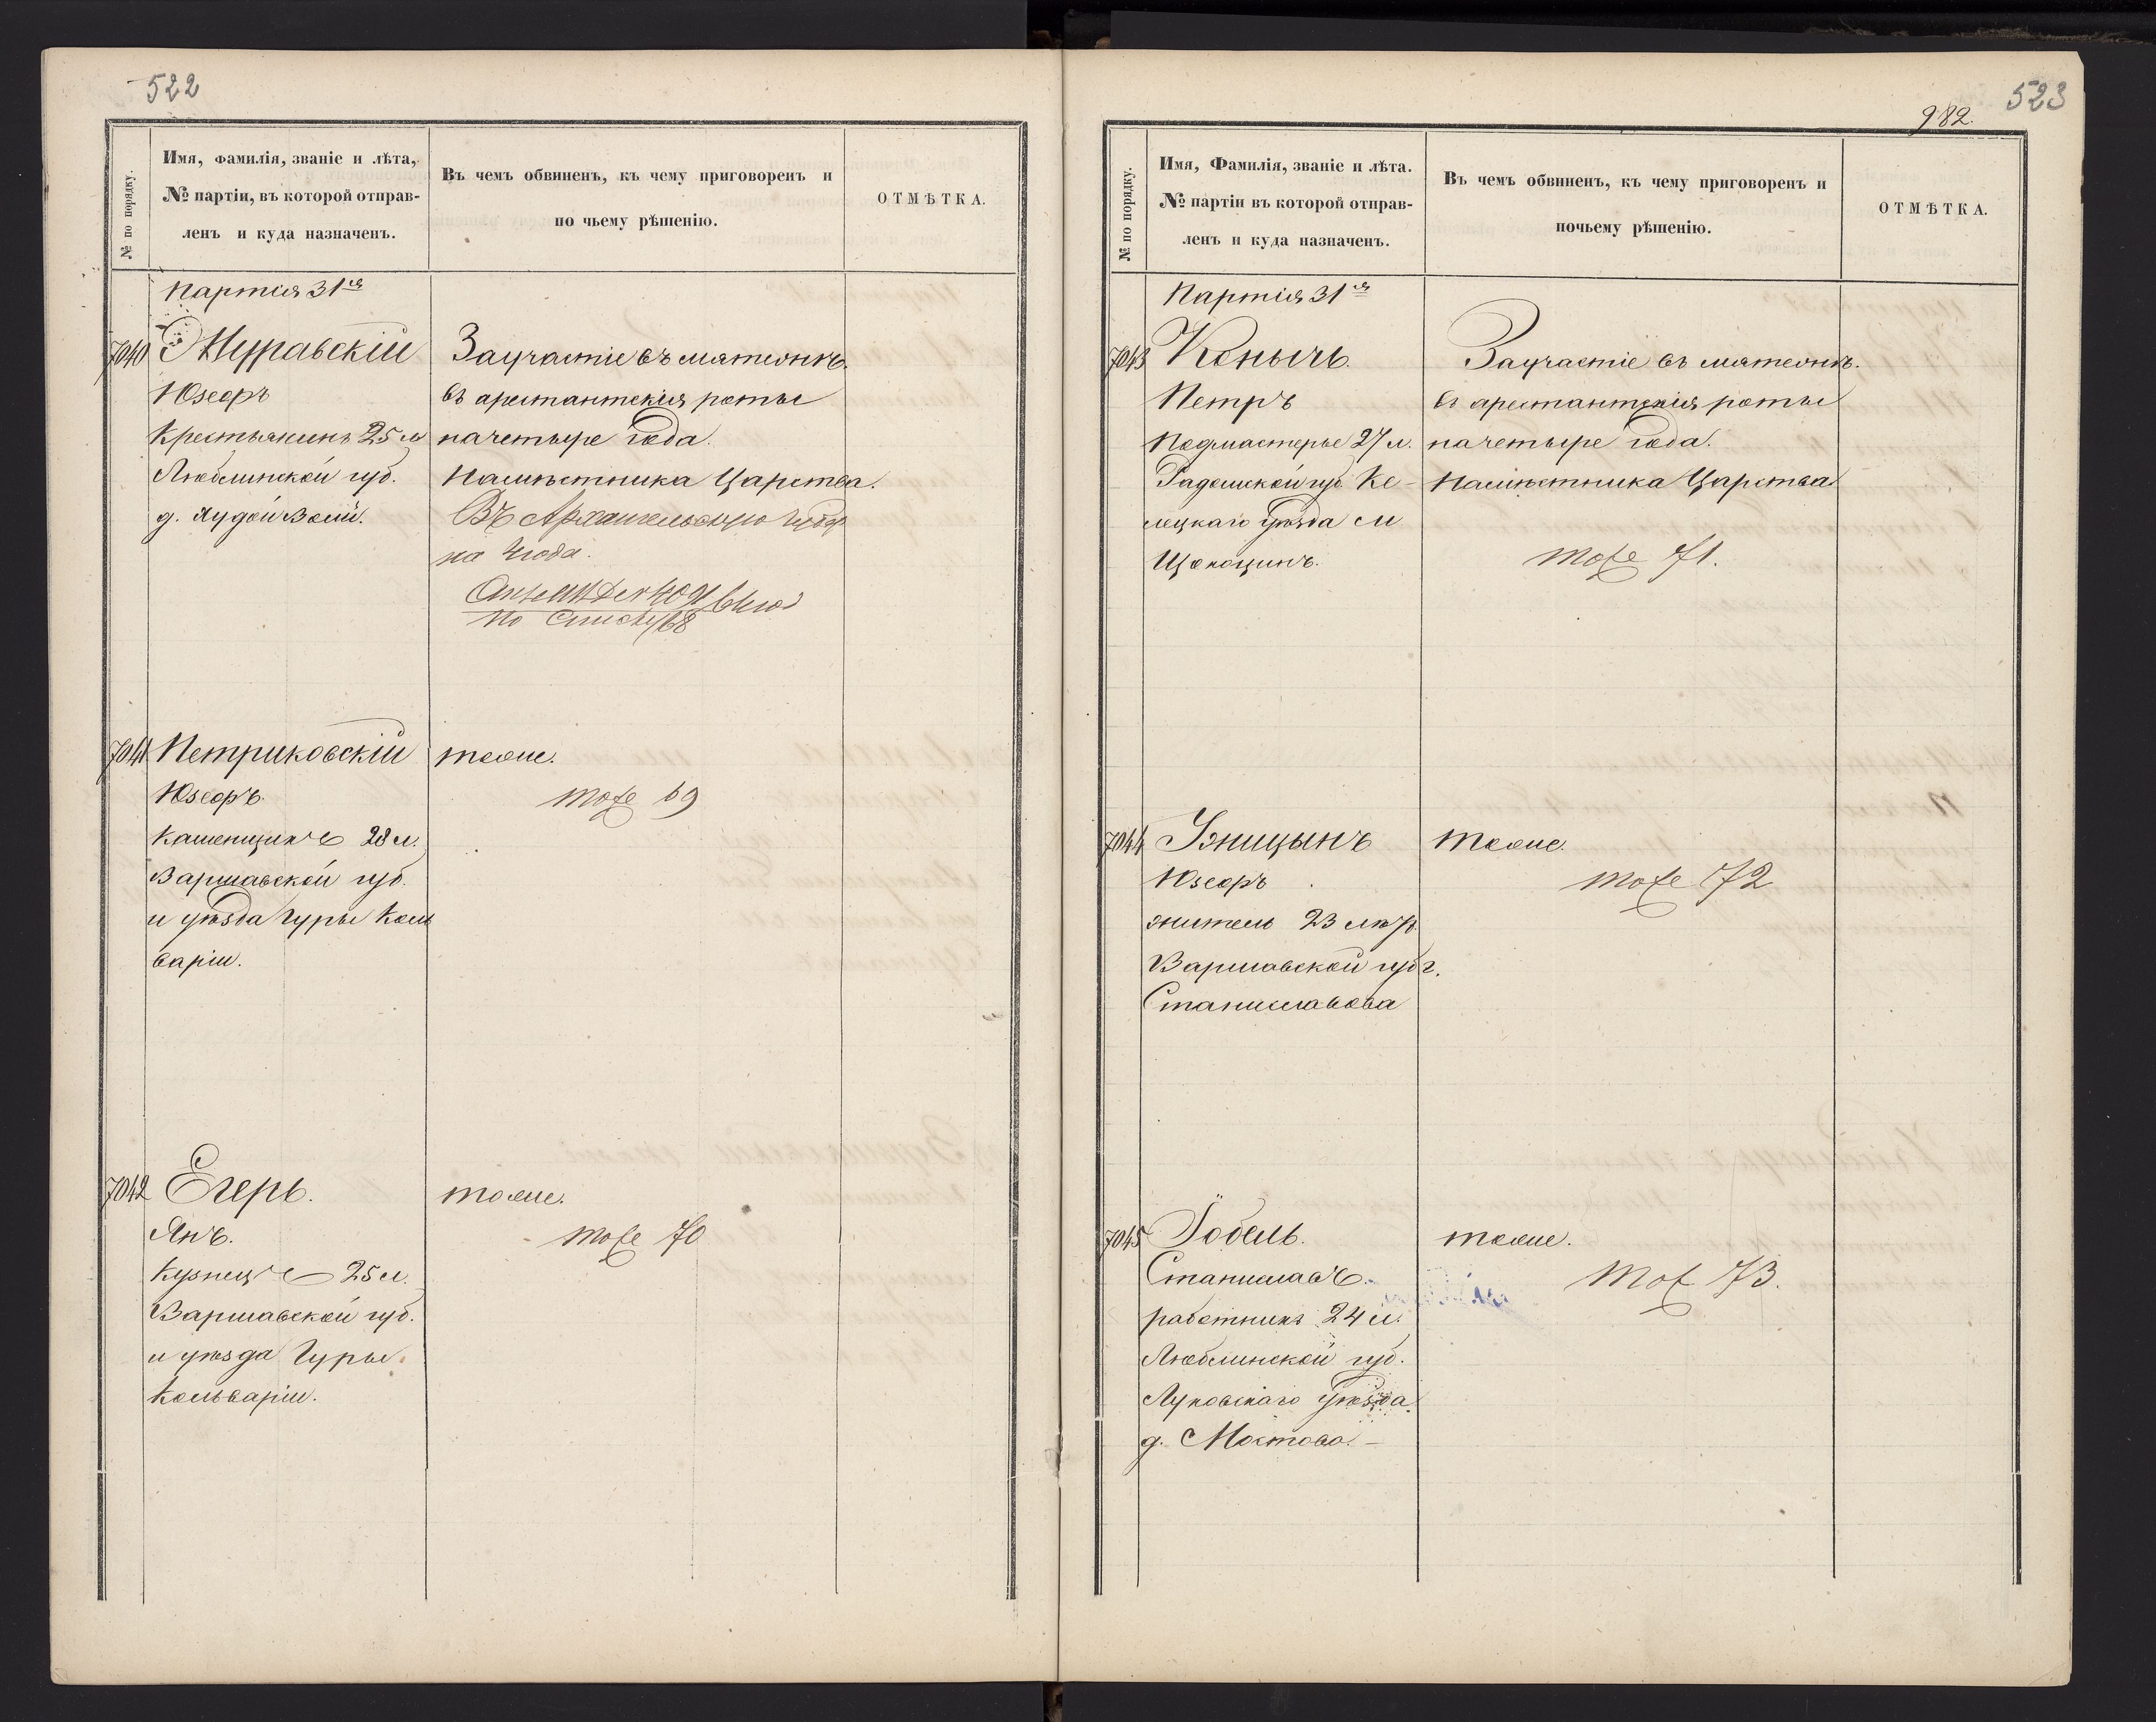 522
№ по порядку.
Имя, фамилія, званіе и лѣта,
№ партіи, въ которой отправ-
ленъ и куда назначенъ.
Въ чемъ обвиненъ, къ чему приговоренъ и
по чьему рѣшенію.
ОТМѢТКА.
Партія 31ая
7040 Журавскій
Юзефъ
Крестьянинъ 25 л
Люблинской губ.
д. Рудой Воли.
За участіе въ мятежѣ.
въ арестантскія роты
на четыре года.
Намѣстника Царства.
Въ Архангельскую губ
на 4 года.
по списку 68
7041 Петриковскій
Юзефъ
Каменщикъ 28 л.
Варшавской губ.
и уѣзда Гуры Каль
варіи.
тоже.
тоже 69
7042 Егеръ.
Янъ.
Кузнецъ 25 л.
Варшавской губ.
и уѣзда Гуры
Кальваріи.
тоже.
тоже 70
523
982.
№ по порядку.
Имя, Фамилія, званіе и лѣта.
№ партіи въ которой отправ-
ленъ и куда назначенъ.
Въ чемъ обвиненъ, къ чему приговоренъ и
почьему рѣшенію.
ОТМѢТКА.
Партія 31я
7043 Конычъ.
Петръ
Подмастерье 27 л.
Радомской губ. Ке-
лецкаго уѣзда м
Щекоцинъ.
За участіе въ мятежѣ.
въ арестантскія роты
на четыре года.
Намѣстника Царства
тоже 71.
7044
Юзефъ
житель 23 лѣтъ
Варшавской губ г.
Станиславова
тоже.
тоже 72
7045 Гобель.
Станиславъ.
работникъ 24 л.
Люблинской губ.
Луковскаго уѣзда
д. Мостова. -
тоже.
тож 73.